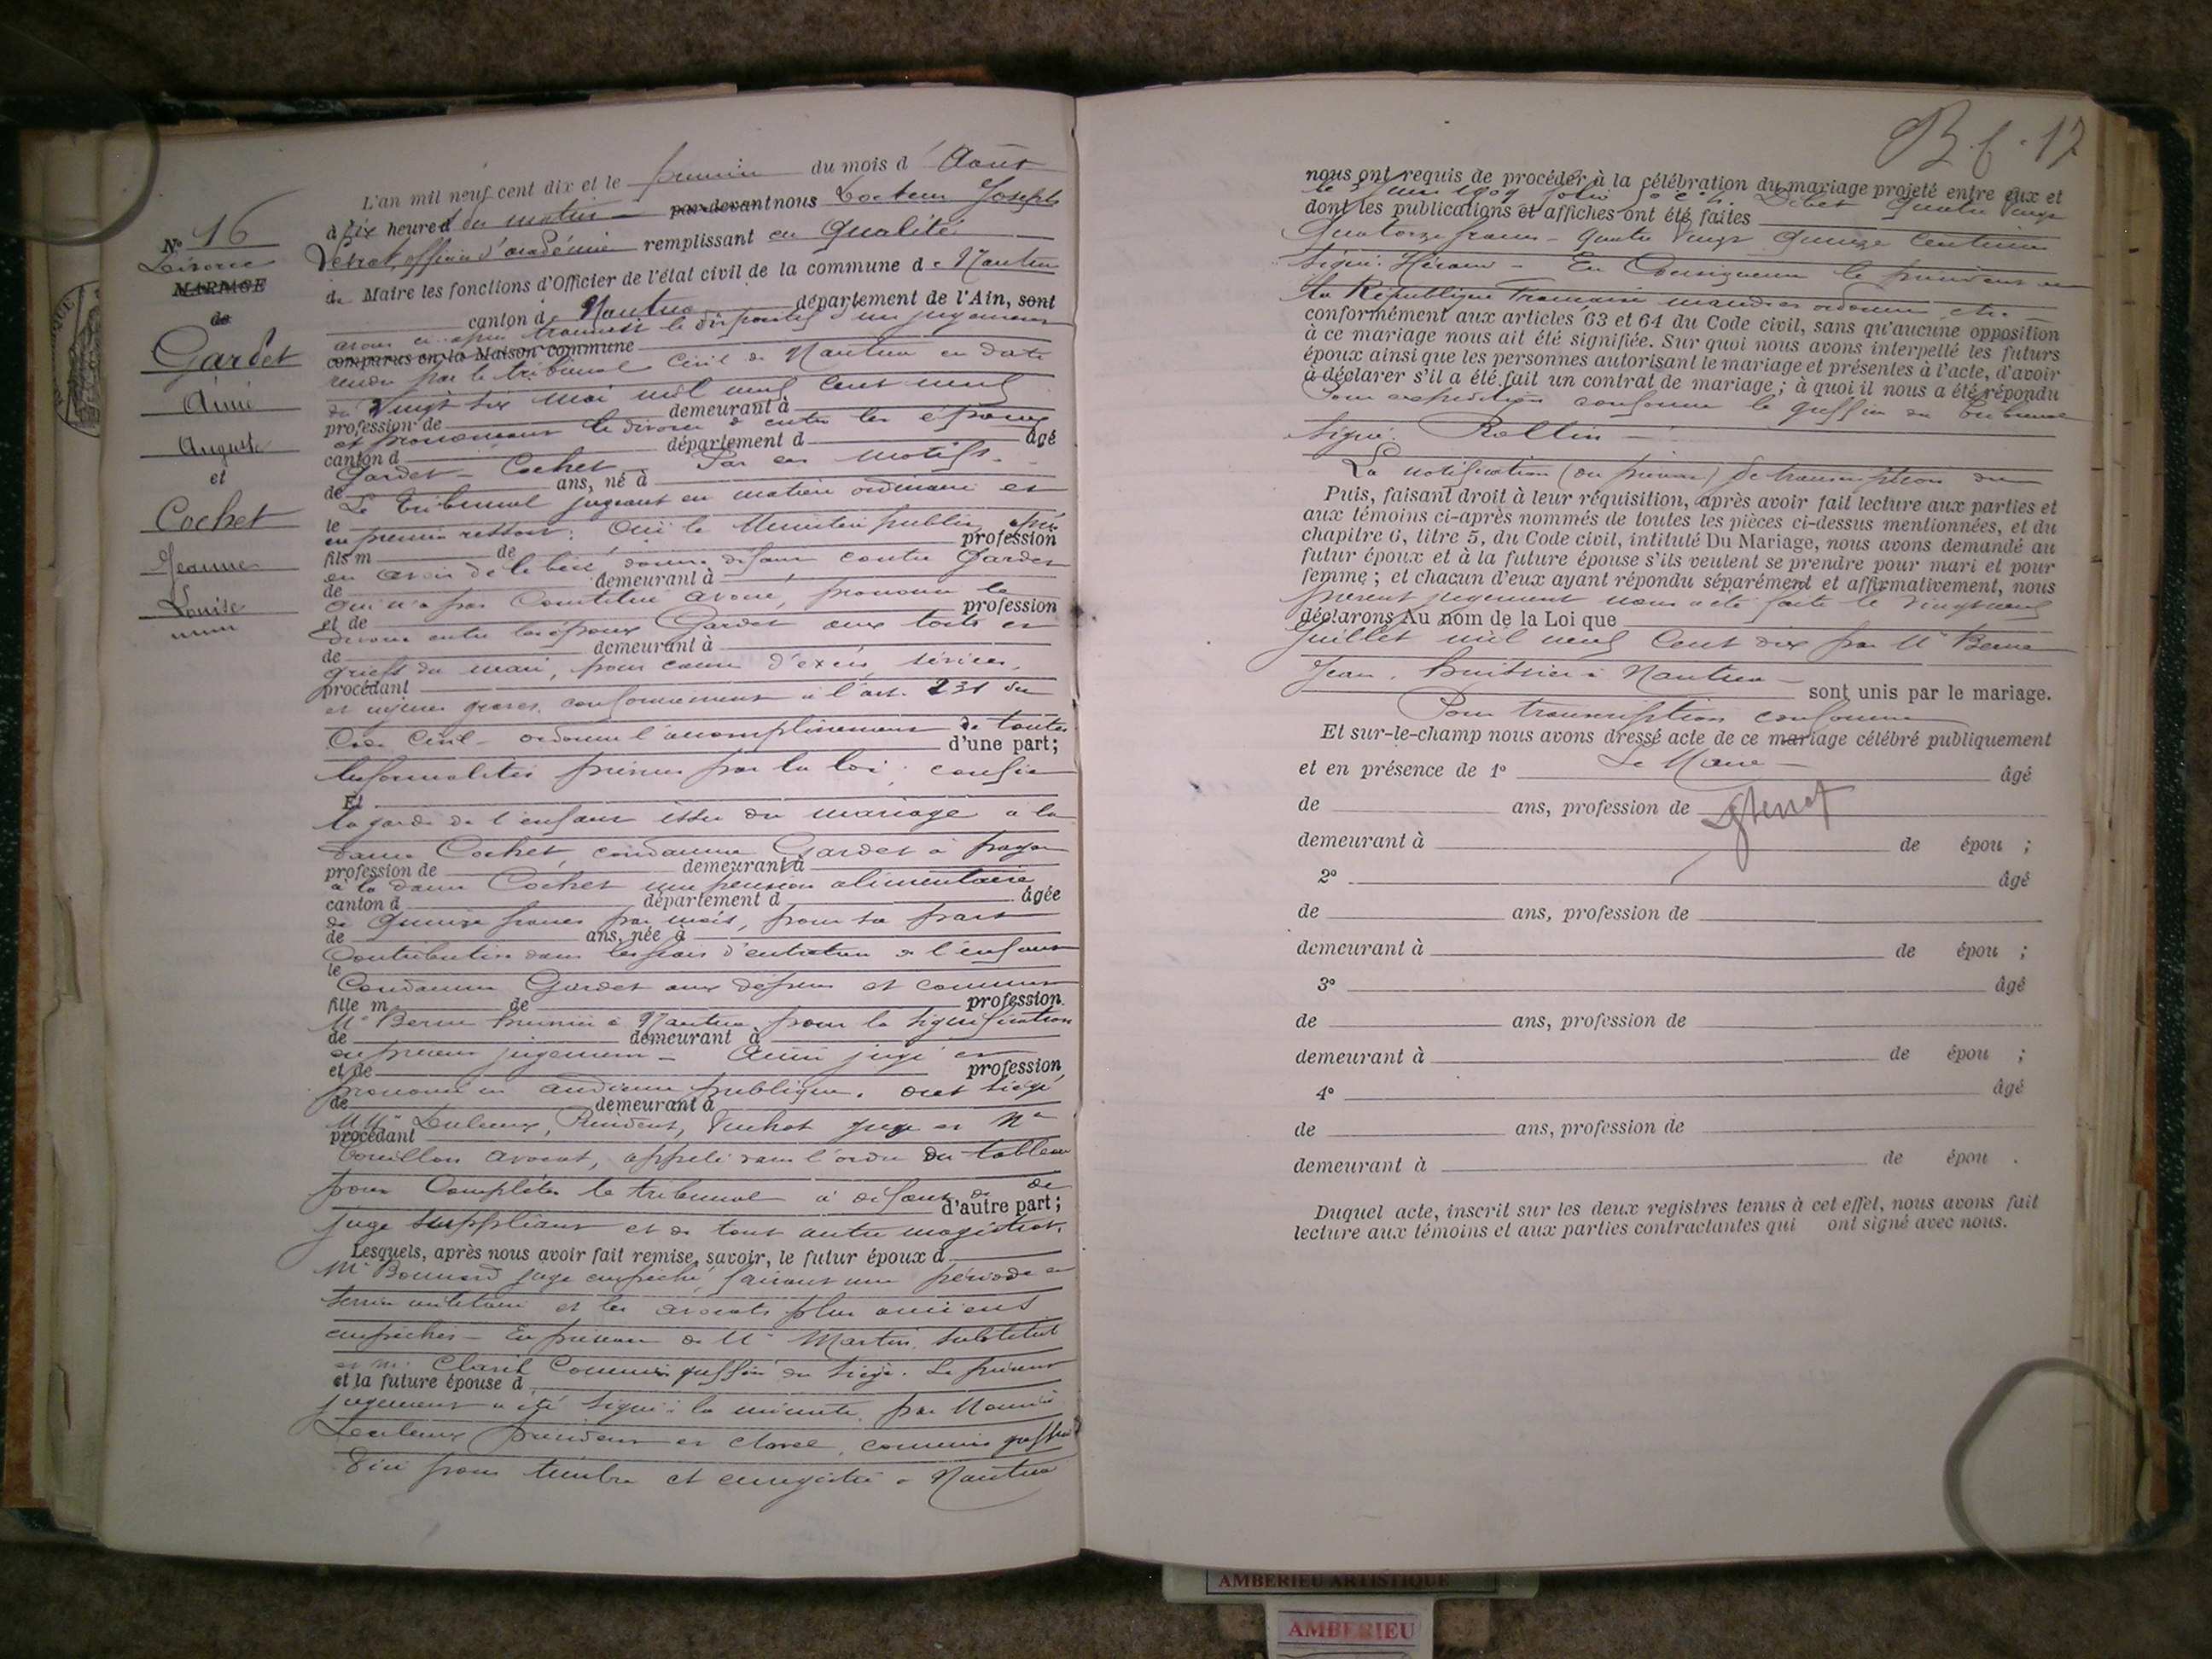 Nº 16
Divorce
MARIAGE
de
Gardet
Aimé
Auguste
et
Cochet
Jeanne
Louise
L'an mil neuf cent dix et le premier du mois d'Août
à dix heures du matin par-devant nous Docteur Joseph
officier d'académie remplissant en qualité
de Maire les fonctions d'Officier de l'état civil de la commune de Nantua
canton de Nantua département de l'Ain, sont
avons ci-après transcrit le dispositif d'un jugement
comparus en la Maison commune
rendu par le tribunal Civil de Nantua en date
du Vingt six mai mil neuf cent neuf
profession de demeurant à
et prononçant le divorce d'entre les époux
canton d département d âgé
Gardet - Cochet - Par ces motifs -
de ans, né à
Le Tribunal jugeant en matière ordinaire et
le
en premier ressort; Ouï le Ministère public, après
profession
fils m de
en avoir délibéré, donne défaut contre Gardet
de demeurant à
qui n'a pas constitué avoué, prononce le
et de profession
divorce entre les époux Gardet aux torts et
de demeurant à
griefs du mari, pour cause d'excès, sévices,
procédant
et injures graves, conformément à l'art. 231 du
Code Civil - ordonne l'accomplissement de toutes
d'une part;
les formalités prévues par la loi; confie
Et
la garde de l'enfant issu du mariage à la
dame Cochet, condamne Gardet à payer
profession de demeurant à
à la dame Cochet une pension alimentaire
canton d département d âgée
de quinze francs par mois, pour sa part
de ans, née à
Contributive dans les frais d'entretien de l'enfant
le
Condamne Gardet aux dépens et commet
fille m de profession
Me Berne huissier à Nantua, pour la signification
de demeurant à
du présent jugement - Ainsi jugé et
et de profession
prononcé en audience publique. Ont siégé
de demeurant à
MM. Président, juge et Me
procédant
Bouillon avocat, appelé dans l'ordre du tableau
pour compléter le tribunal à défaut de
d'autre part;
juge suppléant et de tout autre magistrat,
Lesquels, après nous avoir fait remise, savoir, le futur époux d
Mr Bonnard juge empêché, faisant une période de
service militaire et les avocats plus anciens
empêchés - En présence de Mr Martin, substitut
et M. Clavel Commis greffier du siège. Le présent
et la future épouse d
jugement a été signé à la minute par Messieurs
président et Clavel, commis greffier
Visé pour timbre et enregistré à Nantua
nous ont requis de procéder à la célébration du mariage projeté entre eux et
le 5 Juin 1909 folio Débet quatre vingt
dont les publications et affiches ont été faites
Quatorze francs - quatre vingt quinze centimes
signé: - En Conséquence le président de
la République Française mande et ordonne, etc. -
conformément aux articles 63 et 64 du Code civil, sans qu'aucune opposition
à ce mariage nous ait été signifiée. Sur quoi nous avons interpellé les futurs
époux ainsi que les personnes autorisant le mariage et présentes à l'acte, d'avoir
à déclarer s'il a été fait un contrat de mariage; à quoi il nous a été répondu
Pour expédition conforme le greffier du tribunal
signé: Rollin -
La notification (ou ) de transcription du
Puis, faisant droit à leur réquisition, après avoir fait lecture aux parties et
aux témoins ci-après nommés de toutes les pièces ci-dessus mentionnées, et du
chapitre 6, titre 5, du Code civil, intitulé Du Mariage, nous avons demandé au
futur époux et à la future épouse s'ils veulent se prendre pour mari et pour
femme; et chacun d'eux ayant répondu séparément et affirmativement, nous
présent jugement nous a été faite le vingt neuf
déclarons Au nom de la Loi que
Juillet mil neuf Cent dix par Me Berne
Jean, huissier à Nantua -
sont unis par le mariage.
Pour transcription conforme
Et sur-le-champ nous avons dressé acte de ce mariage célébré publiquement
Le Maire -
et en présence de 1º âgé
de ans, profession de
demeurant à de épou ;
2º âgé
de ans, profession de
demeurant à de épou ;
3º âgé
de ans, profession de
demeurant à de épou ;
4º âgé
de ans, profession de
demeurant à de épou .
Duquel acte, inscrit sur les deux registres tenus à cet effet, nous avons fait
lecture aux témoins et aux parties contractantes qui ont signé avec nous.
AMBERIEU ARTISTIQUE
AMBERIEU